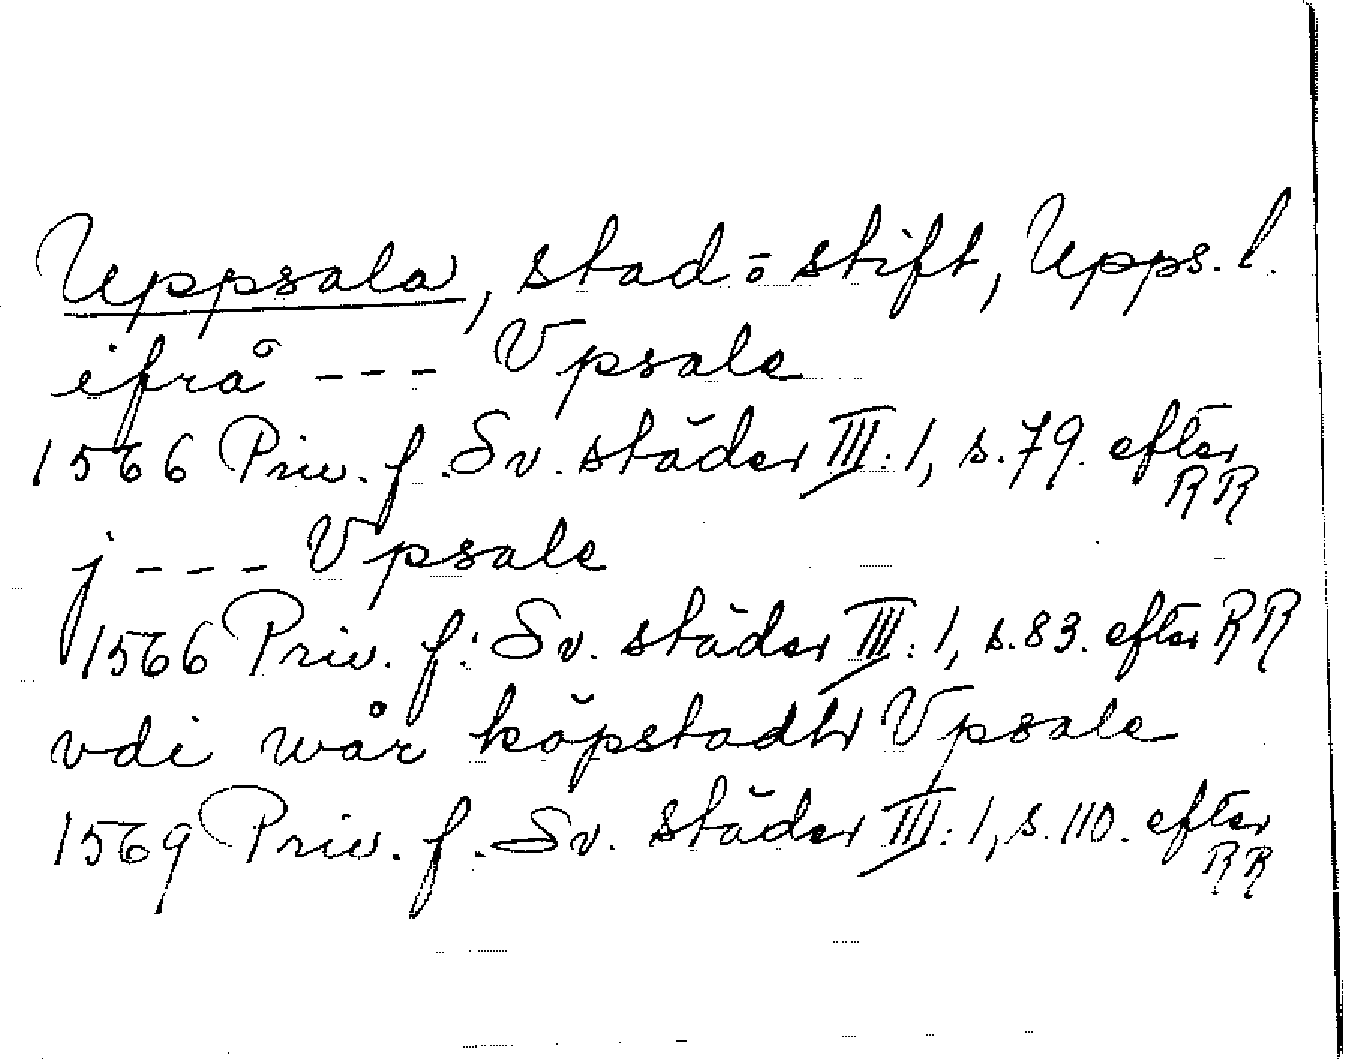 Uppsala, stad o stift, Upps. l.
ifrå --- Vpsale
1566 Priv. f. Sv. städer III: 1, s. 79. efter RR
j --- Vpsale
1566 Priv. f. Sv. städer III: 1, s. 83. efter RR
vdi wår köpstadh Vpsale
1569 Priv. f. Sv. städer III: 1, s. 110. efter RR